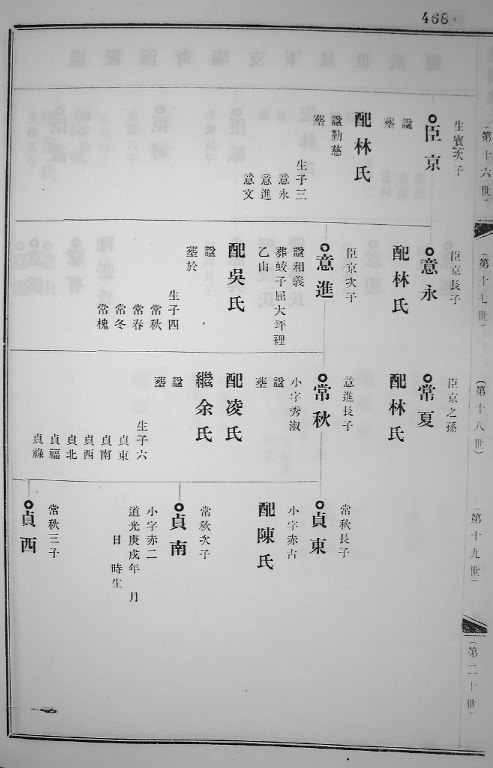 468
第十六世
生賓次子
臣京
諡
墓
配林氏
諡勤慈
墓
生子三
意永
意進
意文
第十七世
臣京長子
意永
配林氏
臣京次子
意進
諡和義
葬峻子屈大坪裡
乙山
配吳氏
諡
墓於
生子四
常秋
常春
常冬
常槐
第十八世
臣京之孫
常夏
配林氏
意進長子
常秋
小字秀淑
諡
墓
配凌氏
繼余氏
諡
墓
生子六
貞東
貞南
貞西
貞北
貞福
貞祿
第十九世
常秋長子
貞東
小字赤古
配陳氏
常秋次子
貞南
小字赤二
道光庚戌年 月
日 時生
常秋三子
貞西
第二十世